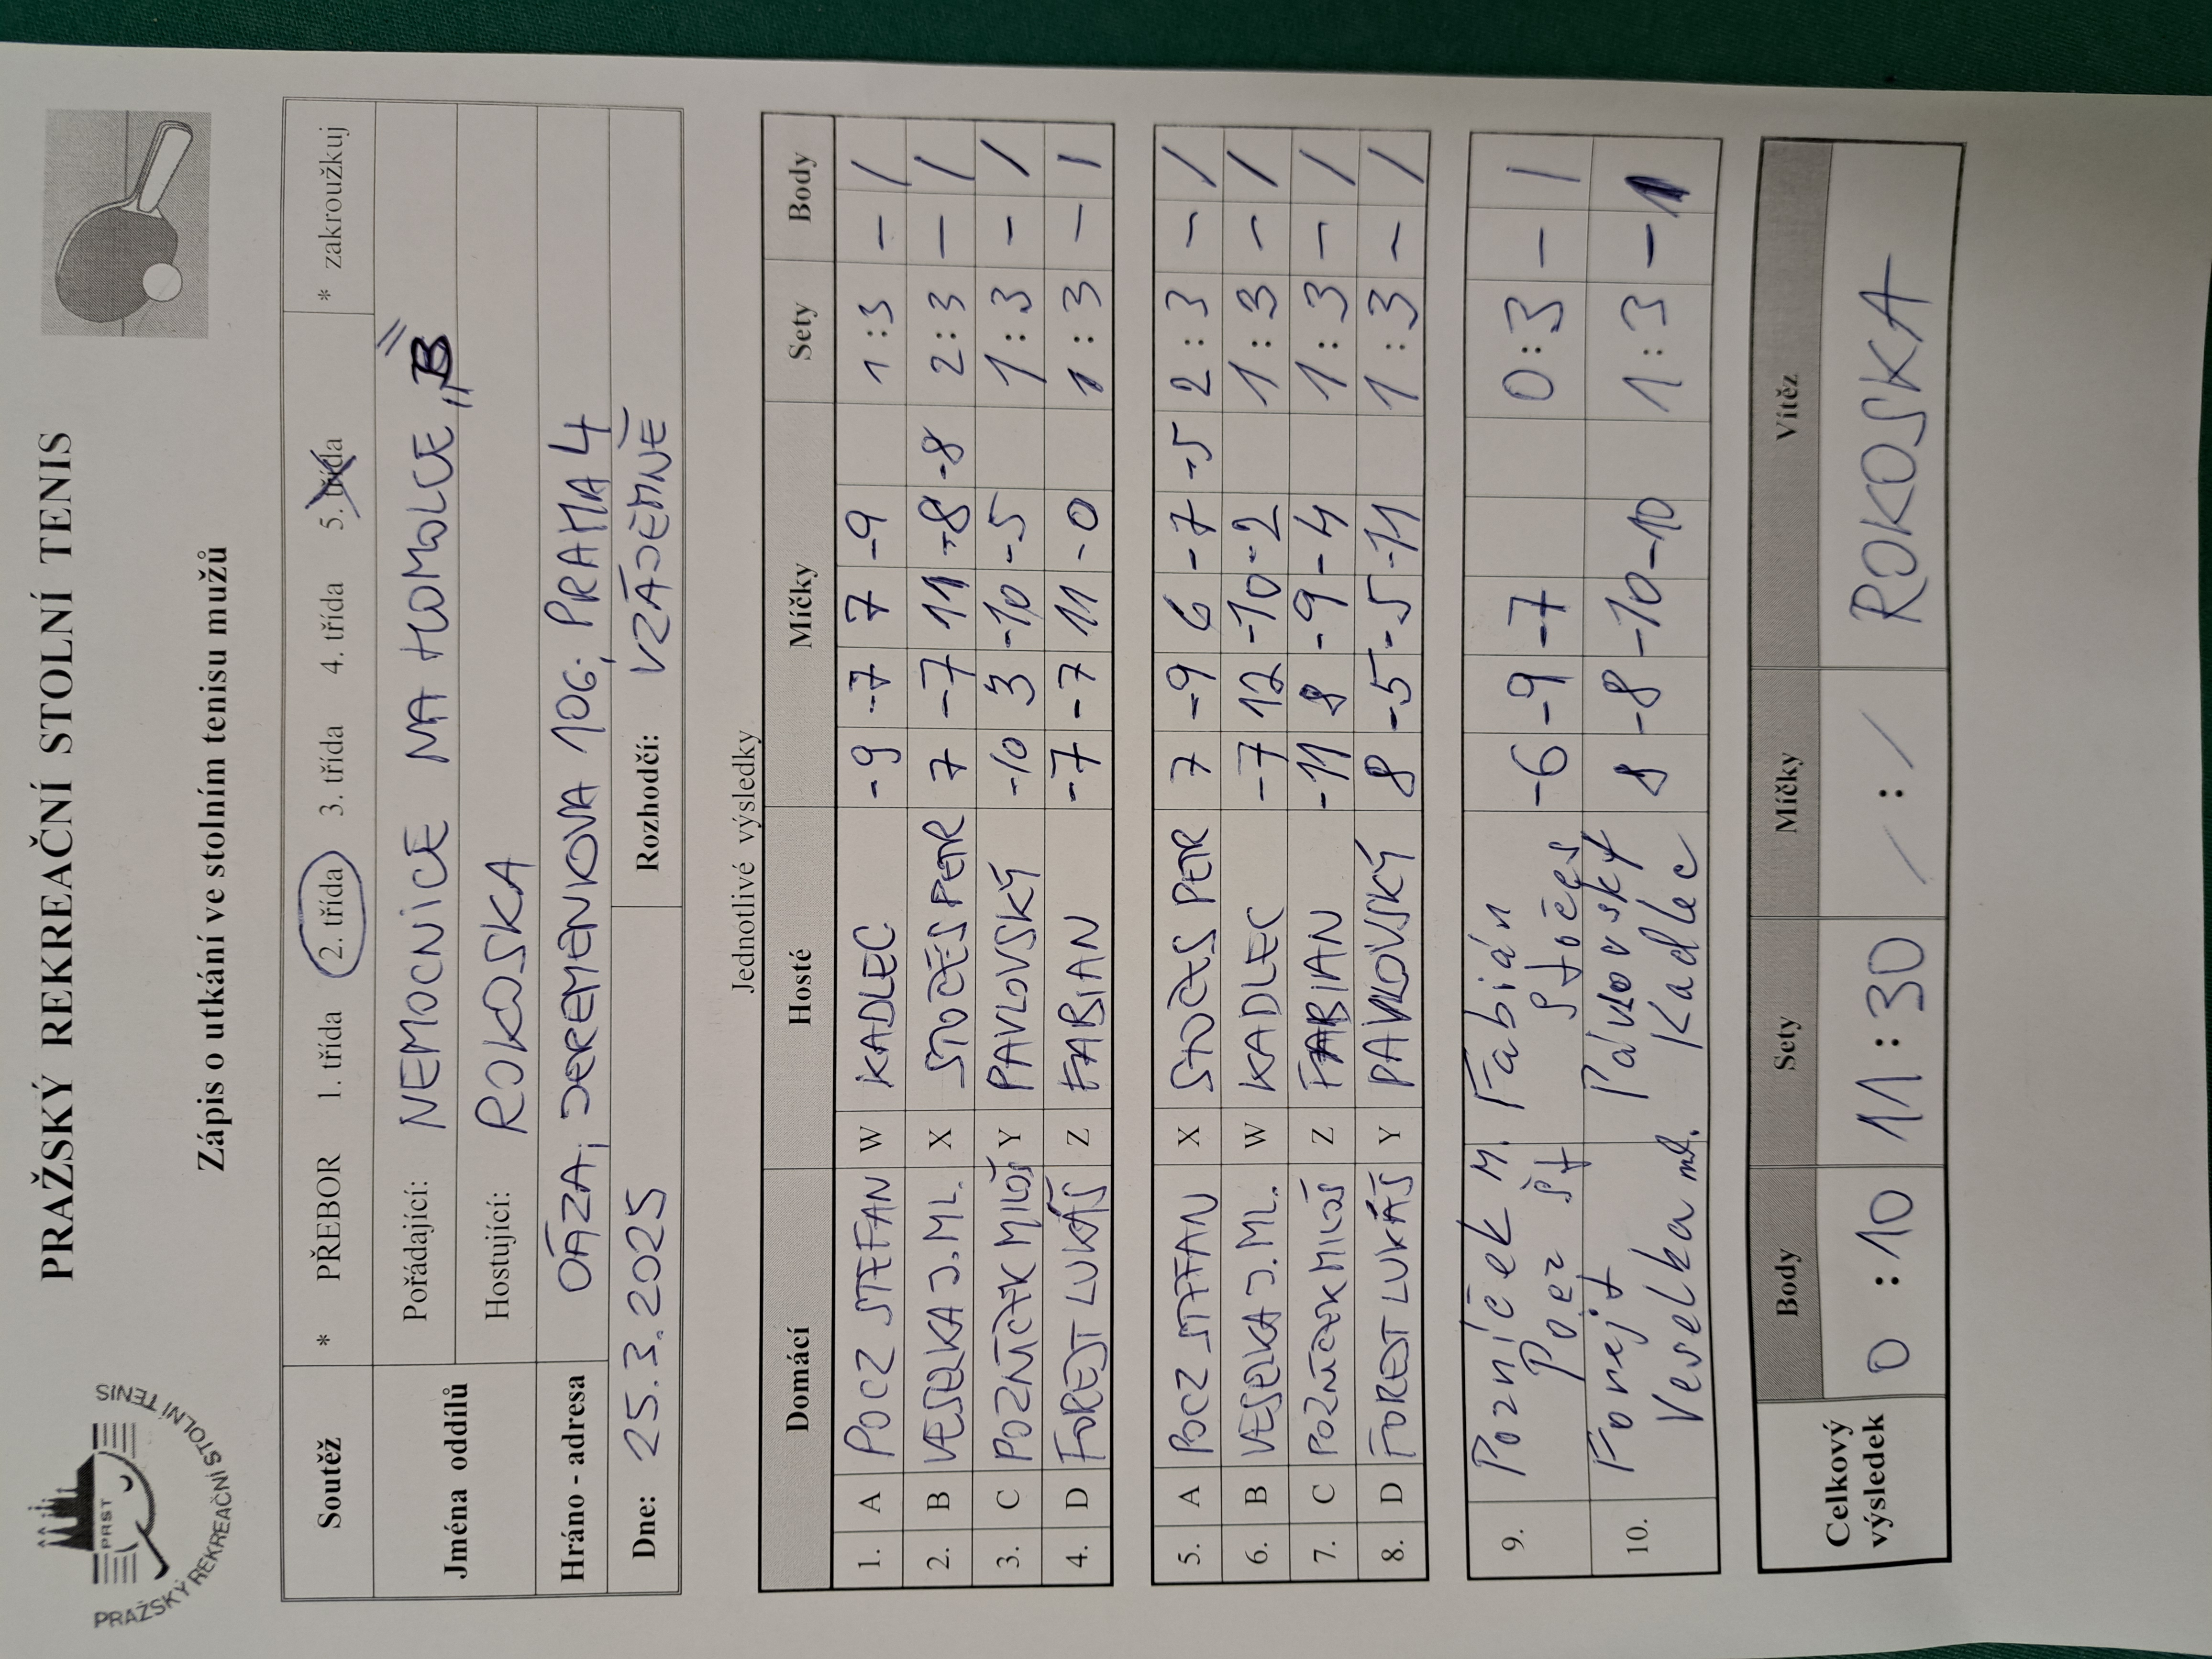 PRAŽSKÝ REKREAČNÍ STOLNÍ TENIS
PRST
PRAŽSKÝ REKREAČNÍ STOLNÍ TENIS
Zápis o utkání ve stolním tenisu mužů
Soutěž * PŘEBOR 1. třída 2. třída 3. třída 4. třída 5. třída * zakroužkuj
Jména oddílů Pořádající: NEMOCNICE NA HOMOLCE „B"
Hostující: ROKOSKA
Hráno - adresa OÁZA, JEREMENKOVA 106, PRAHA 4
Dne: 25.3.2025 Rozhodčí: VZÁJEMNĚ
Jednotlivé výsledky
Domácí Hosté Míčky Sety Body
1. A POCZ STEFAN W KADLEC -9 -7 7 -9 1:3 - 1
2. B VESELKA J. ML. X STOČES PETR 7 -7 11 -8 -8 2:3 - 1
3. C POZNÍČEK MILOŠ Y PAVLOVSKÝ -10 3 -10 -5 1:3 - 1
4. D FOREJT LUKÁŠ Z FABIAN -7 -7 11 -0 1:3 - 1
5. A POCZ STEFAN X STOČES PETR 7 -9 6 -7 -5 2:3 - 1
6. B VESELKA J. ML. W KADLEC -7 12 -10 -2 1:3 - 1
7. C POZNÍČEK MILOŠ Z FABIAN -11 8 -9 -4 1:3 - 1
8. D FOREJT LUKÁŠ Y PAVLOVSKÝ 8 -5 -5 -11 1:3 - 1
9. Pozníček M. Fabián -6 -9 -7 0:3 - 1
Pocz Št Stočes
10. Forejt Pavlovský 8 -8 -10 -10 1:3 - 1
Veselka ml. Kadlec
Celkový výsledek Body Sety Míčky Vítěz
0 : 10 11 : 30 / : / ROKOSKA